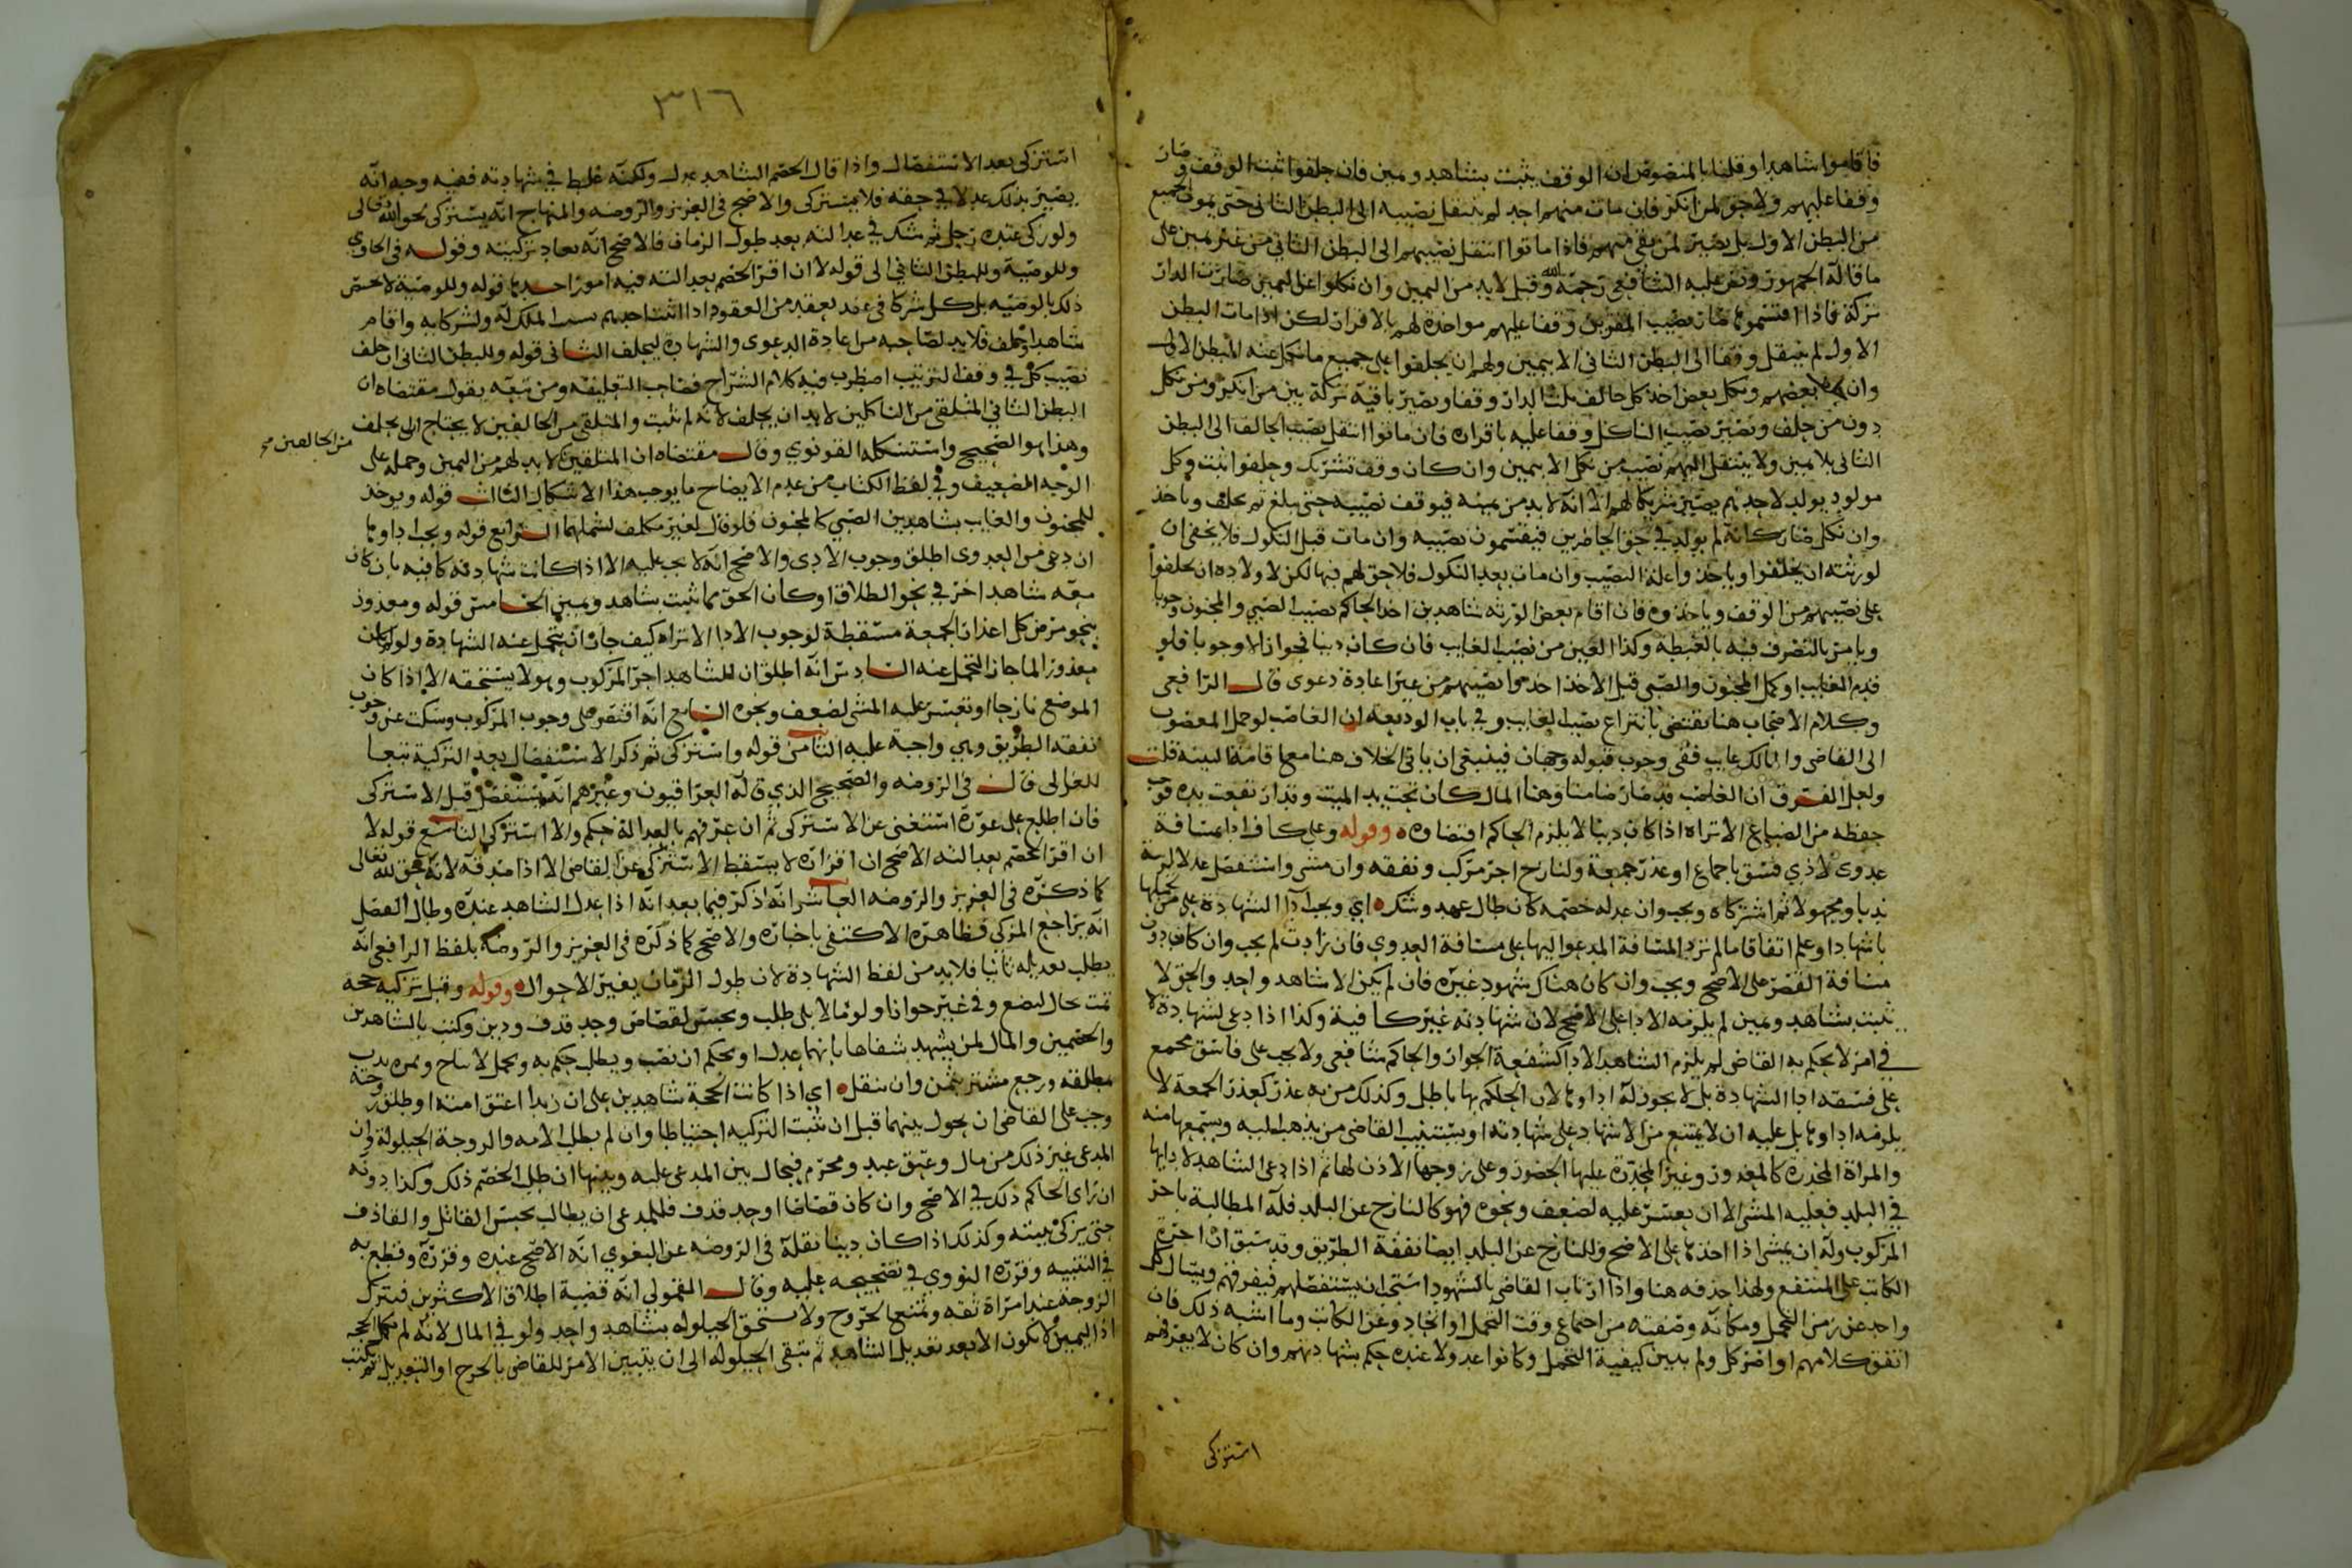 فاقاموا شاهدا وقلنا بالمنصوص ان الوقف يثبت بشاهد ويمين فان حلفوا ثبت الوقف وصار
وقفا عليهم ولا حق لمن انكر فان مات منهم احد لم ينتقل نصيبه الى البطن الثاني حتى يموت جميع
من البطن الاول بل يصير لمن بقي منهم فاذا ماتوا انتقل نصيبهم الى البطن الثاني من غير يمين على
ما قاله الجمهور ونص عليه الشافعي رحمه الله وقيل لا بد من اليمين وان نكلوا عن اليمين صارت الدار
تركة فاذا اقتسموها صار نصيب المقرين وقفا عليهم مواخذة لهم بالاقرار لكن اذا مات البطن
الاول لم ينتقل وقفا الى البطن الثاني الا بيمين ولهم ان يحلفوا على جميع ما نكل عنه البطن الاول
وان حلف بعضهم ونكل بعض اخذ كل حالف ثلث الدار وقفا ويصير باقيه تركة بين من انكر ومن نكل
دون من حلف ويصير نصيب الناكل وقفا عليه باقراره فان ماتوا انتقل نصيب الحالف الى البطن
الثاني بلا يمين ولا ينتقل اليهم نصيب من نكل الا بيمين وان كان وقف تشريك وحلفوا ثبت وكل
مولود يولد لاحدهم يصير شريكا لهم الا انه لا بد من يمينه فيوقف نصيبه حتى يبلغ ثم يحلف وياخذ
وان نكل صار كانه لم يولد في حق الحاضرين فيقتسمون نصيبه وان مات قبل النكول فلا يخفى ان
لورثته ان يحلفوا وياخذوا غلة النصيب وان مات بعد النكول فلا حق لهم فيها لكن لاولاده ان يحلفوا
على نصيبهم من الوقف وياخذوه فان اقام بعض الورثة شاهدين اخذ الحاكم نصيب الصبي والمجنون وجوبا
ويامر بالتصرف فيه بالغبطة وكذا العين من نصيب الغايب فان كان دينا فجوازا لا وجوبا فلو
قدم الغايب او كمل المجنون والصبي قبل الاخذ اخذوا نصيبهم من غير اعادة دعوى قال الرافعي
وكلام الاصحاب هنا يقتضي بانتزاع نصيب الغايب وفي باب الوديعة ان الغاصب لو حمل المغصوب
الى القاضي والمالك غايب ففي وجوب قبوله وجهان فينبغي ان ياتي الخلاف هنا مع اقامة البينة قلت
ولعل الفرق ان الغاصب قد صار ضامنا وهنا المال كان تحت يد الميت وقد ارتفعت يده فوجب
حفظه من الضياع الا تراه اذا كان دينا لا يلزم الحاكم اقتضاوه وقوله وعلى كاف اداء بمسافة
عدوى لا ذي فسق باجماع او عذر جمعة ولنازح اجر مركب ونفقه وان مشى واستفصل عدلا لريبة
ندبا ومجهولا ثم استزكاه ويجب وان عدله خصمه كان طال عهد وشك اي ويجب اداء الشهادة على من تحملها
باشهاد او علم اتفاقا ما لم تزد المسافة المدعو اليها على مسافة العدوى فان زادت لم يجب وان كان دون
مسافة القصر على الاصح ويجب وان كان هناك شهود غيره فان لم يكن الا شاهد واحد والحق لا
يثبت بشاهد ويمين لم يلزمه الاداء على الاصح لان شهادته غير كافية وكذا اذا دعي لشهادة لا
في امر لا يحكم به القاضي لم يلزم الشاهد الاداء كشفعة الجوار والحاكم شافعي ولا يجب على فاسق مجمع
على فسقه اداء الشهادة بل لا يجوز له اداوها لان الحكم بها باطل وكذلك من به عذر كعذر الجمعة لا
يلزمه اداوها بل عليه ان لا يمتنع من الاشهاد على شهادته او يستنيب القاضي من يذهب اليه ويسمعها منه
والمراة المخدرة كالمعذور وغير المخدرة عليها الحضور وعلى زوجها الاذن لها ثم اذا دعي الشاهد لادايها
في البلد فعليه المشي الا ان يعسر عليه لضعف ونحوه فهو كالنازح عن البلد فله المطالبة باجر
المركوب وله ان يمشي اذا اخذها على الاصح وللنازح عن البلد ايضا نفقة الطريق وقد سبق ان اجرة
الكاتب على المنتفع ولهذا حذفه هنا واذا ارتاب القاضي بالشهود استحب ان يستفصلهم فيفرقهم ويسال كل
واحد عن زمن التحمل ومكانه وصفته من اجتماع وقت التحمل او اتحاد وعن الكاتب وما اشبه ذلك فان
اتفق كلامهم او اضرب كل ولم يبين كيفية التحمل وكانوا عدولا عنده حكم بشهادتهم وان كان لا يعرفهم
استزكى
٣١٦
استزكى بعد الاستفصال واذا قال الخصم الشاهد عدل ولكنه غلط في شهادته ففيه وجه انه
يصير بذلك عدلا في حقه فلا يستزكى والاصح في العزيز والروضه والمنهاج انه يستزكى لحق الله تعالى
ولو زكى عنده رجل ثم شك في عدالته بعد طول الزمان فالاصح انه تعاد تزكيته وقوله في الحاوي
وللوصية وللبطن الثاني الى قوله لا ان اقر الخصم بعدالته فيه امور احدها قوله وللوصية لا يختص
ذلك بالوصيه بل كل شركا في عقد بعقد من العقود اذا اثبت احدهم سبب الملك له ولشركايه واقام
شاهدا وحلف فلا بد لصاحبه من اعادة الدعوى والشهادة ليحلف الثاني قوله وللبطن الثاني ان حلف
نصيب كل في وقف الترتيب اضطرب فيه كلام الشراح فصاحب التعليقه ومن تبعه يقول مقتضاه ان
البطن الثاني المتلقي من الناكلين لا بد ان يحلف لانه لم يثبت والمتلقي من الحالفين لا يحتاج الى يحلف
وهذا هو الصحيح واستشكله القونوي وقال مقتضاه ان المتلقين لا بد لهم من اليمين وحمله على
من الحالفين صح
الوجه الضعيف وفي لفظ الكتاب من عدم الايضاح ما يوجب هذا الاشكال الثالث قوله ويوخذ
للمجنون والغايب بشاهدين الصبي كالمجنون فلو قال لغير مكلف لشملهما الرابع قوله ويجب اداوها
ان دعي من العدوى اطلق وجوب الادى والاصح انه لا يجب عليه الا اذا كانت شهادته كافيه بان كان
معه شاهد اخر في نحو الطلاق او كان الحق مما يثبت بشاهد ويمين الخامس قوله ومعذور
بنحو مرض كل اعذار الجمعة مسقطة لوجوب الاداء الا تراه كيف جاز ان يتحمل عنه الشهادة ولو لم يكن
معذورا لما جاز التحمل عنه السادس انه اطلق ان للشاهد اجر المركوب وهو لا يستحقه الا اذا كان
الموضع نازحا او تعسر عليه المشي لضعف ونحوه السابع انه اقتصر على وجوب المركوب وسكت عن وجوب
نفقه الطريق وهي واجبة عليه الثامن قوله واستزكى ثم ذكر الاستفصال بعد التزكية تبعا
للغزالي قال في الروضه والصحيح الذي قاله العراقيون وغيرهم انه يستفصل قبل الاستزكى
فان اطلع على عورة استغنى عن الاستزكى ثم ان عرفهم بالعدالة حكم والا استزكى التاسع قوله لا
ان اقر الخصم بعدالته الاصح ان اقراره لا يسقط الاستزكى عن القاضي الا اذا صدقه لانه حق لله تعالى
كما ذكره في العزيز والروضه العاشر انه ذكر فيما بعد انه اذا عدل الشاهد عنده وطال الفصل
انه يراجع المزكي فظاهره الاكتفى باخباره والاصح كما ذكره في العزيز والروضة بلفظ الرافعي انه
يطلب تعديله ثانيا فلا بد من لفظ الشهادة لان طول الزمان يغير الاحوال وقوله وقبل تزكيه حجه
تمت حال لبضع وفي غير جوازا ولو مالا بلى طلب ويحبس لقصاص وحد قذف ودين وكتب بالشاهدين
والخصمين والمال لمن يشهد شفاها بانهما عدل او يحكم ان نصب ويطلب حكم به
مطلقه ورجع مشتر بثمن وان ينقل اي اذا كانت الحجة شاهدين على ان زيدا اعتق امته او طلق زوجته
وجب على القاضي ان يحول بينهما قبل ان تثبت التزكيه احتياطا وان لم يطلب الامه والزوجة الحيلولة وان
المدعى غير ذلك من مال وعتق عبد ومحرم فيحال بين المدعى عليه وبينها ان طلب الخصم ذلك وكذا دونه
ان راى الحاكم ذلك في الاصح وان كان قصاصا او حد قذف فللمدعي ان يطالب بحبس القاتل والقاذف
حتى يزكى بينته وكذلك اذا كان دينا نقله في الروضه عن البغوي انه الاصح عنده وقرره وقطع به
في التنبيه وقرره النووي في تصحيحه عليه وقال القمولي انه قضية اطلاق الاكثرين فيترك
الزوجة عند امراة ثقه ويمنع الخروج ولا يستحق الحيلوله بشاهد واحد ولو في المال لانه لم تكمل الحجه
اذ اليمين لا تكون الا بعد تعديل الشاهد ثم تبقى الحيلوله الى ان يتبين الامر للقاضي بالجرح او التعديل ثم يكتب